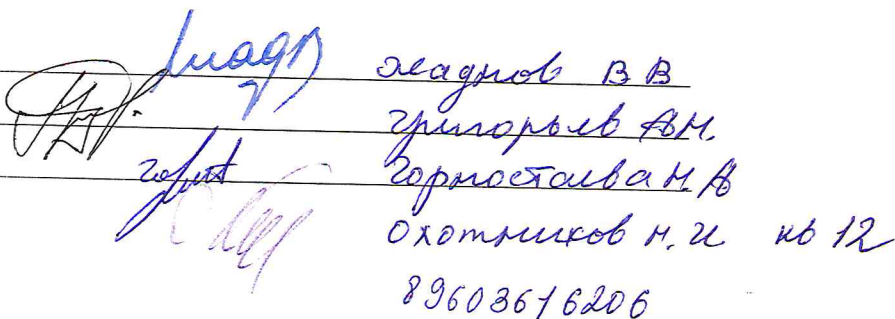 жаднов В В
Григорьев А.Н.
Горностаева Н.А
Охотников Н.И кв 12
89603616206